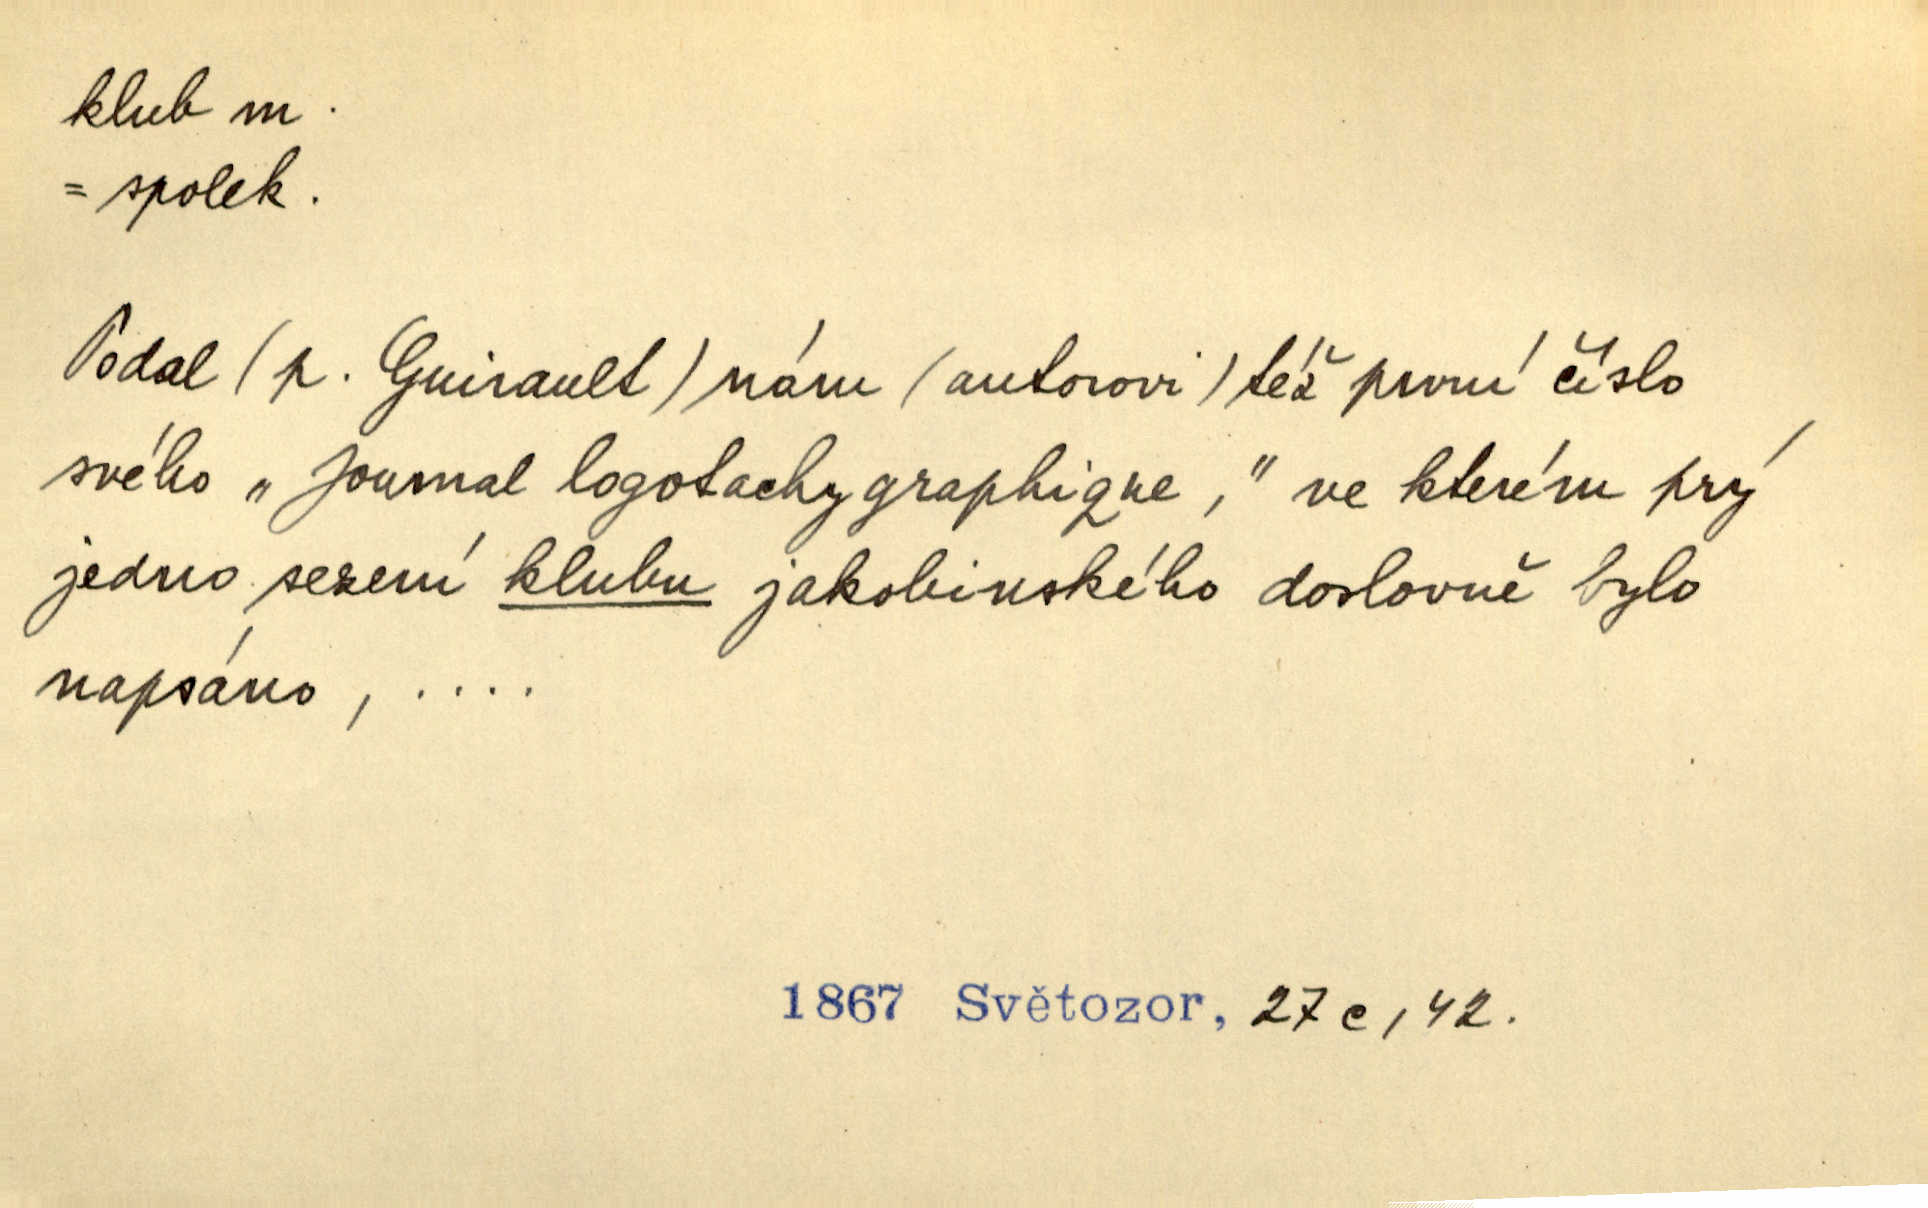 klub m.
= spolek.
Podal (p. Guirault) nám (autorovi) též první číslo
svého „Journal logotachygraphique," ve kterém prý
jedno sezení klubu jakobinského doslovně bylo
napsáno, ....
1867 Světozor, 27c, 42.